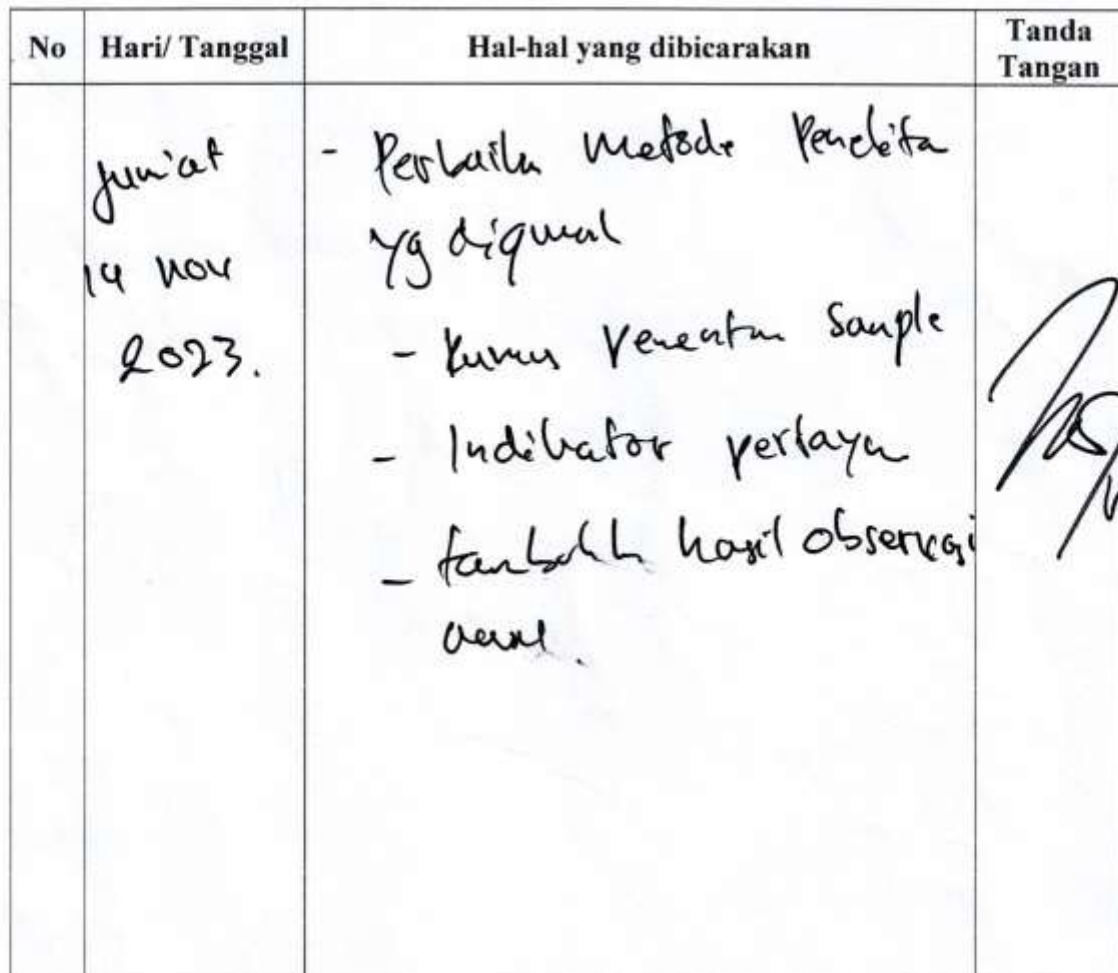 No Hari/ Tanggal Hal-hal yang dibicarakan Tanda Tangan
Jum'at - Perbaiki Metode Penelitia
14 Nov yg digunak
2023. - Rumus Penentun Sample
- Indikator pertaya
- tambahk hasil observasi
awal.